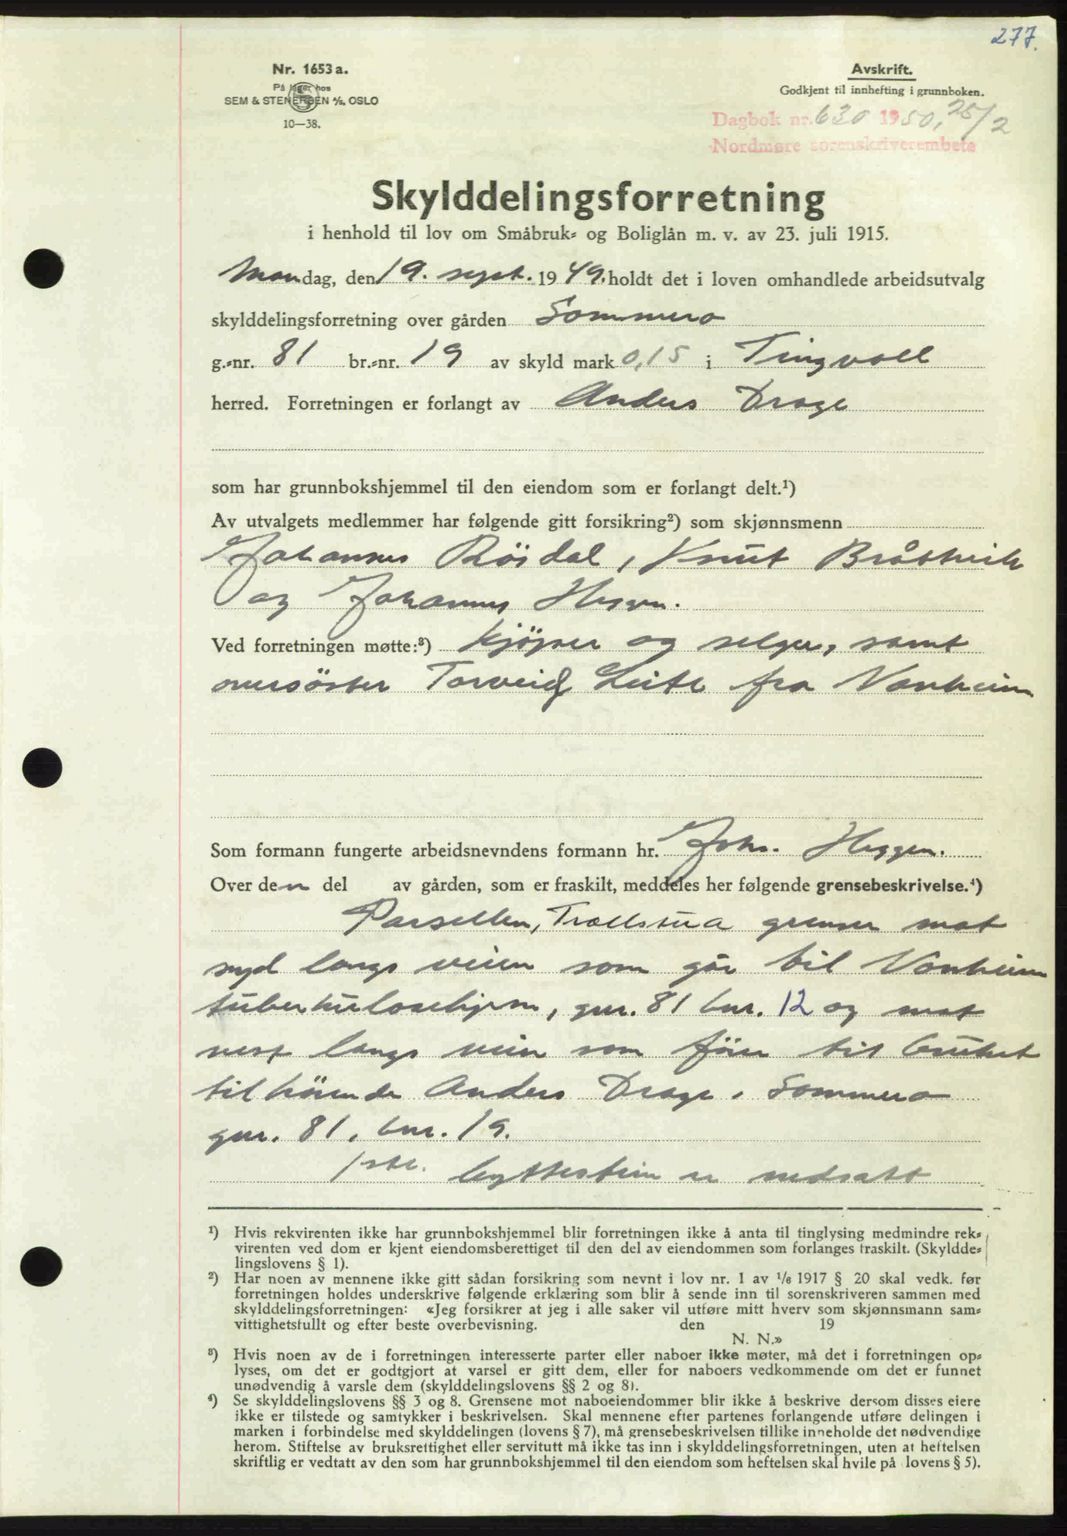 277.
Nr. 1653 a.
På lager hos
SEM & STENERSEN A/S, OSLO
10—38.
Avskrift.
Godkjent til innhefting i grunnboken.
Dagbok nr. 630 1950, 25/2
Nordmøre sorenskriverembete
Skylddelingsforretning
i henhold til lov om Småbruk- og Boliglån m. v. av 23. juli 1915.
Mandag, den 19. sept. 1949. holdt det i loven omhandlede arbeidsutvalg
skylddelingsforretning over gården Sommero
g.-nr. 81 br.-nr. 19 av skyld mark 0,15 i Tingvoll
herred. Forretningen er forlangt av Anders Drage
som har grunnbokshjemmel til den eiendom som er forlangt delt.¹)
Av utvalgets medlemmer har følgende gitt forsikring²) som skjønnsmenn
Johannes Röisdal, Knut Bråttvik
og Johannes
Ved forretningen møtte:³) Kjöper og selger, samt
oversöster Torveig Leite fra Vonheim
Som formann fungerte arbeidsnevndens formann hr. Johs. Heggem.
Over den del av gården, som er fraskilt, meddeles her følgende grensebeskrivelse.⁴)
Parsellen, Trollstua grenser mot
syd langs veien som går til Vonheim
tuberkulosehjem, gnr. 81 bnr. 12 og mot
vest langs veien som förer til bruket
tilhörende Anders Drage, Sommero
gnr. 81, bnr. 19.
1 stk. byttestein er nedsatt
¹) Hvis rekvirenten ikke har grunnbokshjemmel blir forretningen ikke å anta til tinglysing medmindre rek-
virenten ved dom er kjent eiendomsberettiget til den del av eiendommen som forlanges fraskilt. (Skyldde-
lingslovens § 1).
²) Har noen av mennene ikke gitt sådan forsikring som nevnt i lov nr. 1 av 1/6 1917 § 20 skal vedk. før
forretningen holdes underskrive følgende erklæring som blir å sende inn til sorenskriveren sammen med
skylddelingsforretningen: «Jeg forsikrer at jeg i alle saker vil utføre mitt hverv som skjønnsmann sam-
vittighetsfullt og efter beste overbevisning. den 19
N. N.»
³) Hvis noen av de i forretningen interesserte parter eller naboer ikke møter, må det i forretningen op-
lyses, om det er godtgjort at varsel er gitt dem, eller for naboers vedkommende om det er funnet
unødvendig å varsle dem (skylddelingslovens §§ 2 og 8).
⁴) Se skylddelingslovens §§ 3 og 8. Grensene mot naboeiendommer blir ikke å beskrive dersom disses eiere
ikke er tilstede og samtykker i beskrivelsen. Skal mennene efter partenes forlangende utføre delingen i
marken i forbindelse med skylddelingen (lovens § 7), må grensebeskrivelsen tillike inneholde det nødvendige
herom. Stiftelse av bruksrettighet eller servitutt må ikke tas inn i skylddelingsforretningen, uten at heftelsen
skriftlig er vedtatt av den som har grunnbokshjemmel til den eiendom som heftelsen skal hvile på (lovens § 5).